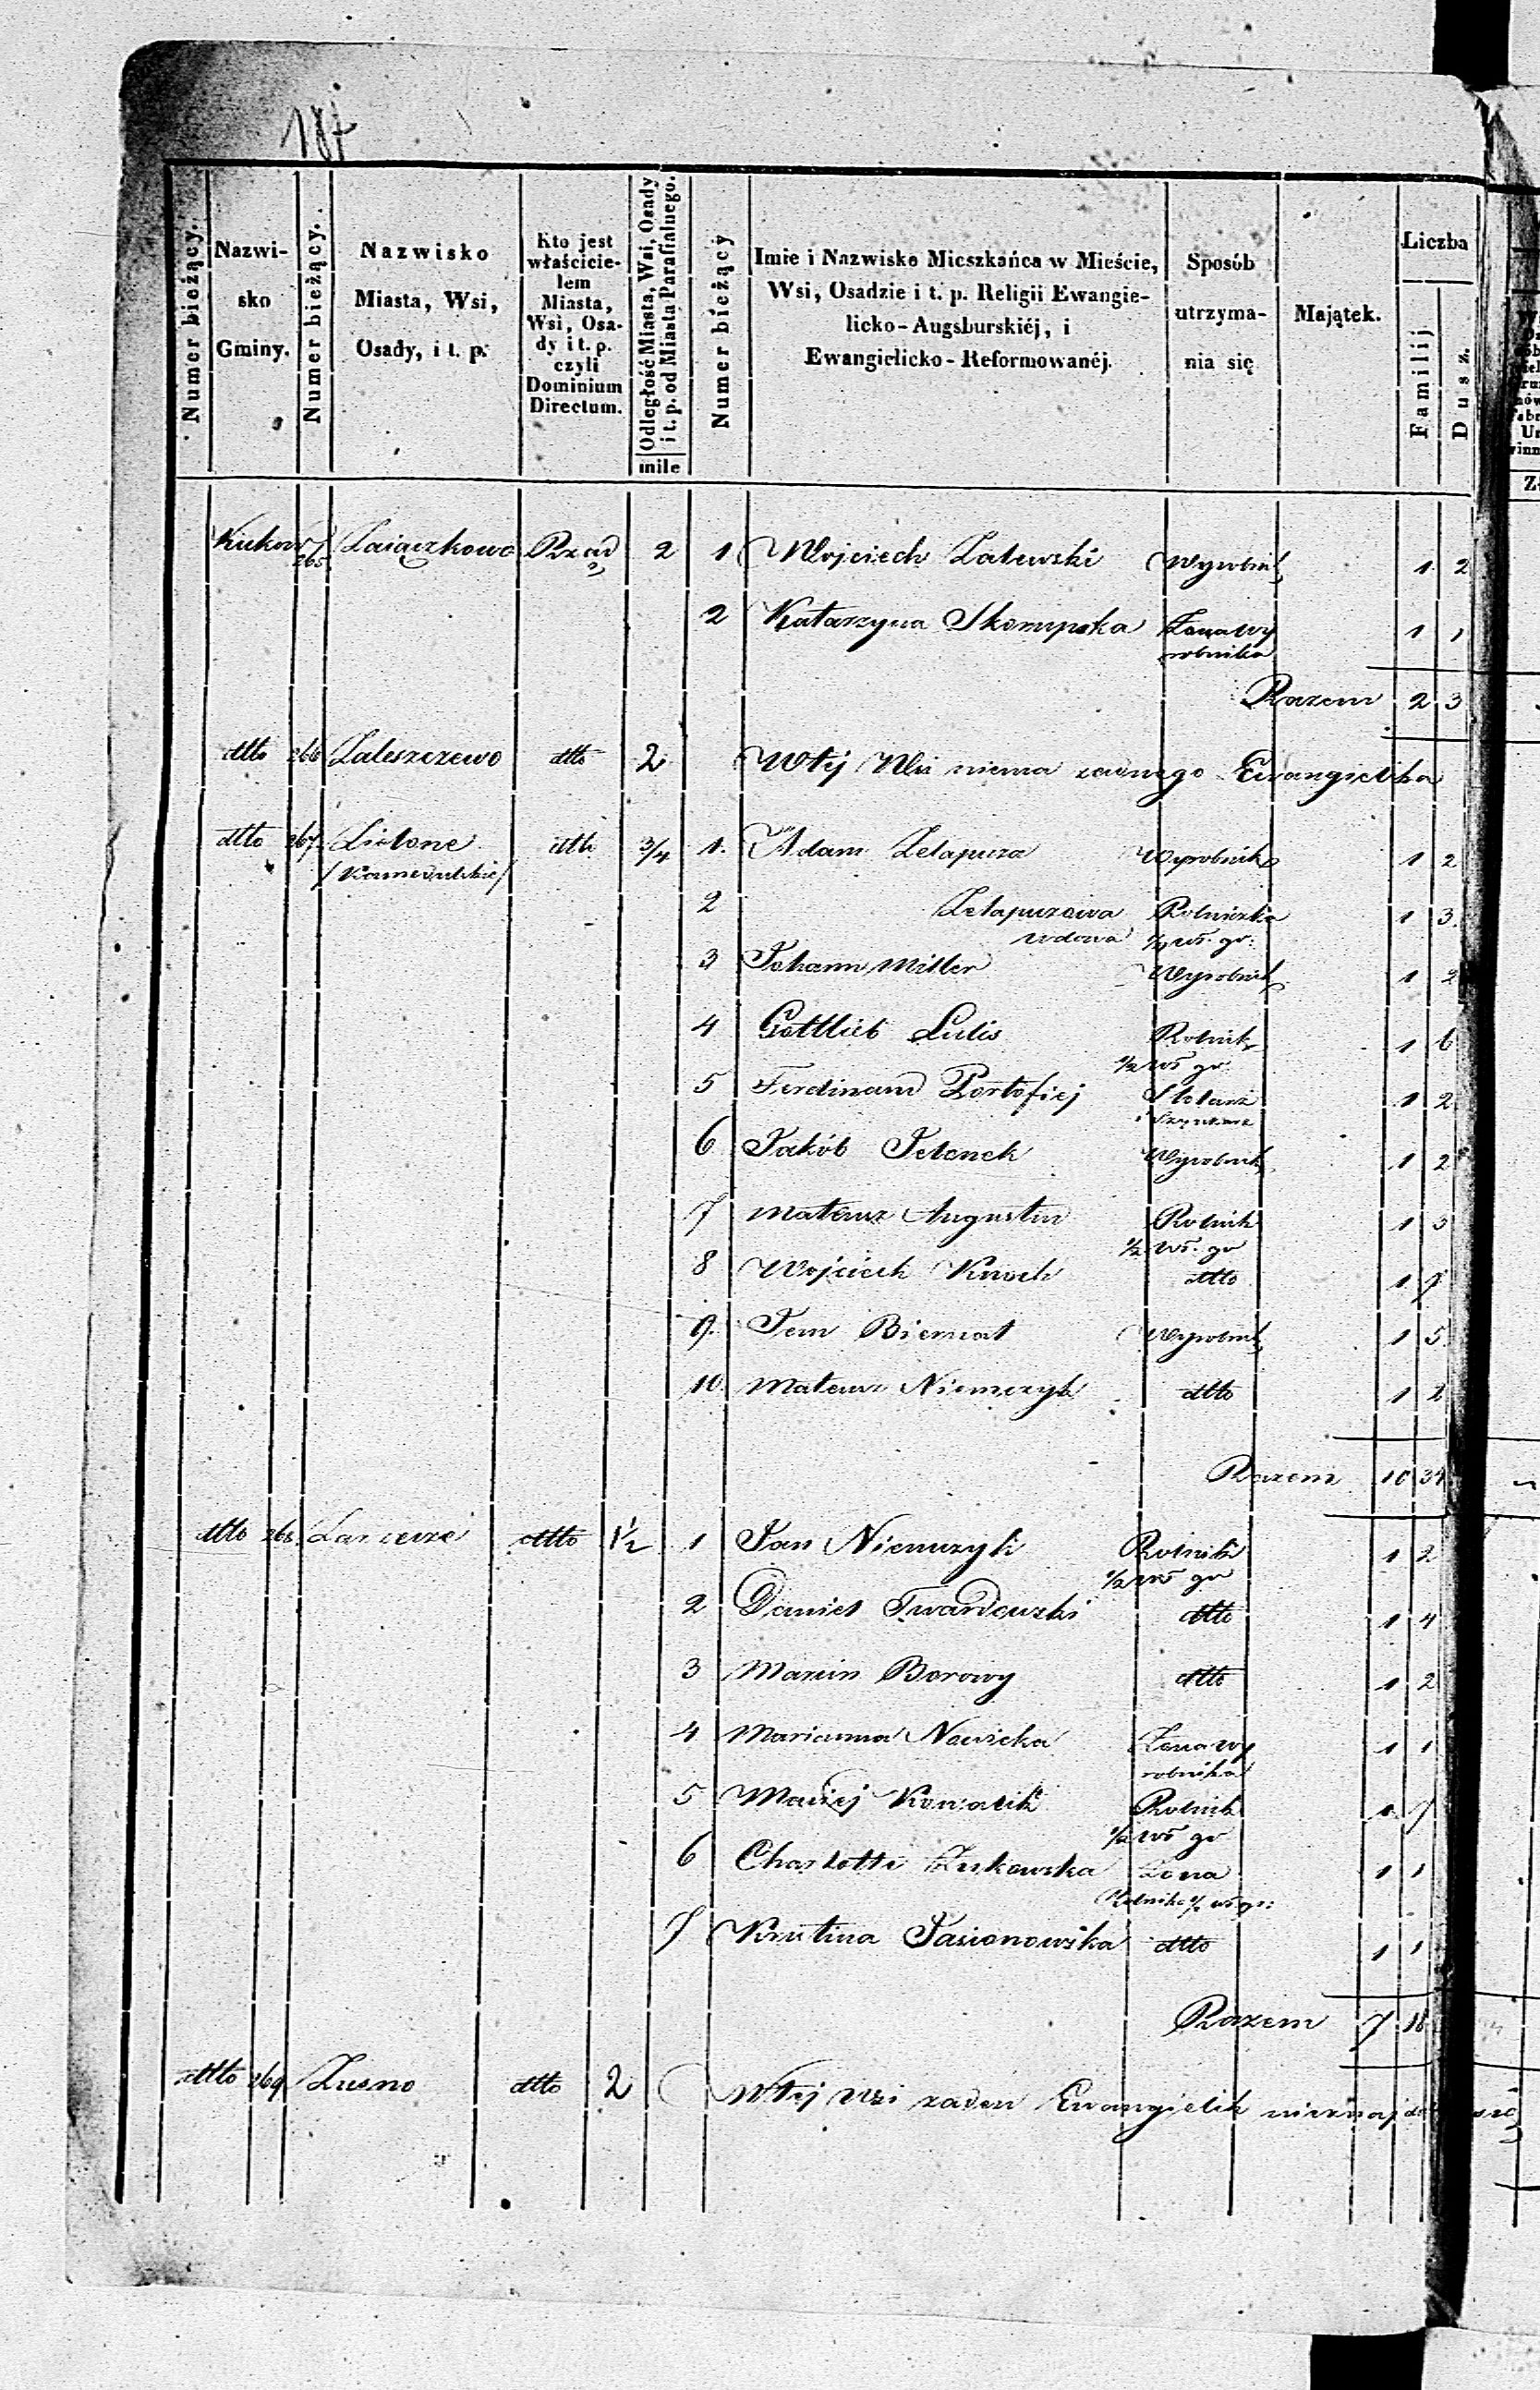 187
Numer bieżący.
Nazwi-
sko
Gminy.
Numer bieżący.
Nazwisko
Miasta, Wsi,
Osady, i t. p.
Kto jest
właścicie-
lem
Miasta,
Wsi, Osa-
dy i t. p.
czyli
Dominium
Directum.
Odległość Miasta, Wsi, Osady
i t. p. od Miasta Parafialnego.
mile
Numer bieżący
Imie i Nazwisko Mieszkańca w Mieście,
Wsi, Osadzie i t. p. Religii Ewangie-
licko-Augsburskiéj, i
Ewangielicko-Reformowanéj.
Sposób
utrzyma-
nia się
Majątek.
Liczba
Familij
Dusz.
265 Zaiączkowo Rząd 2 1 Wojciech Zalewski Wyrobnik 1 2
2 Katarzyna Skorupska Żona wy 1 1
robnika
Razem 2 3
dtto 266 Zaleszczewo dtto 2 W tej Wsi niema żadnego Ewangielika
dtto 267 Zielone dtto 3/4 1. Adam Zelapuza Wyrobnik 1 2
/Kamedulskie/
2 Zelapuzowa Rolniczka 1 3
wdowa wł. gr.
3 Johann Miller Wyrobnik 1 2
4 Gottlieb Lulis Rolnik 1 6
1/2 wł gr.
5 Ferdinand Portofiej Stolarz 1 2
6 Jakób Jelonek Wyrobnik 1 2
7 Mateusz Augustin Rolnik 1
1/2 wł. gr
8 Wojciech dtto 1 7
9. Biernat Wyrobnik 1 5
10. Mateusz Niemczyk dtto 1 2
Razem 10 34
dtto 268. dtto 1 1/2 1 Jan Niemczyk Rolnik 1 2
1/2 wł gr
2 Daniel Twardowski dtto 1 4
3 Marcin Borowy dtto 1 2
4 Marianna Nowicka Żona wy 1 1
robnika
5 Maciej Kowalik Rolnik 1 7
1/2 wł gr
6 Charlotte Żukowska Żona 1 1
Rolnika wł gr:
7 Kristina Jasionowska dtto 1 1
Razem 7 18
dtto 269 Żusno dtto 2 W tej Wsi żaden Ewangielik